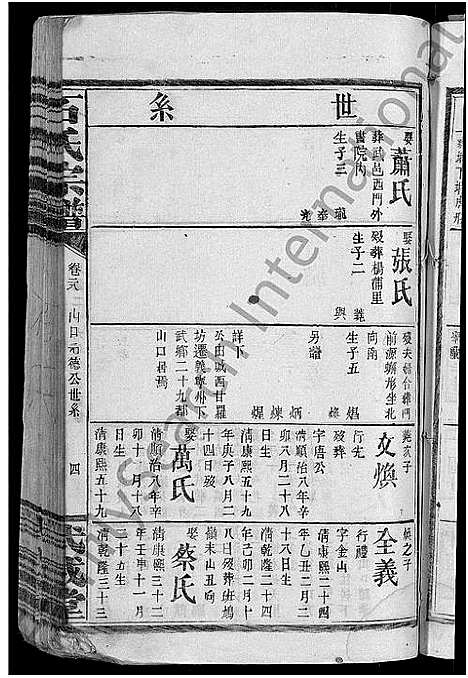 世系
娶蕭氏
葬武邑西門外
書院內
生子三
娶張氏
歿葬楊蒲里
生子二
前源獅形坐北
向南
生子五
另譜
詳下
公由城西甘羅
坊遷義寧州下
武鄉二十九都
山口居焉
文煥
行先
字唐公
歿葬
清順治八年辛
卯八月二十八
日生
清康熙五十九
年庚子八月二
十四日歿
娶萬氏
清順治八年辛
卯十一月十八
日生
清康熙五十九
全義
煥之子
行禮
字金山
清康熙二十四
年乙丑二月二
十六日生
清乾隆二十四
年己卯二月十
八日歿葬班鳩
嶺未山丑向
娶蔡氏
清康熙三十二
年壬申十一月
二十五生
清乾隆三十三
石氏宗譜
山口元德公世系
四
武威堂
My Star International